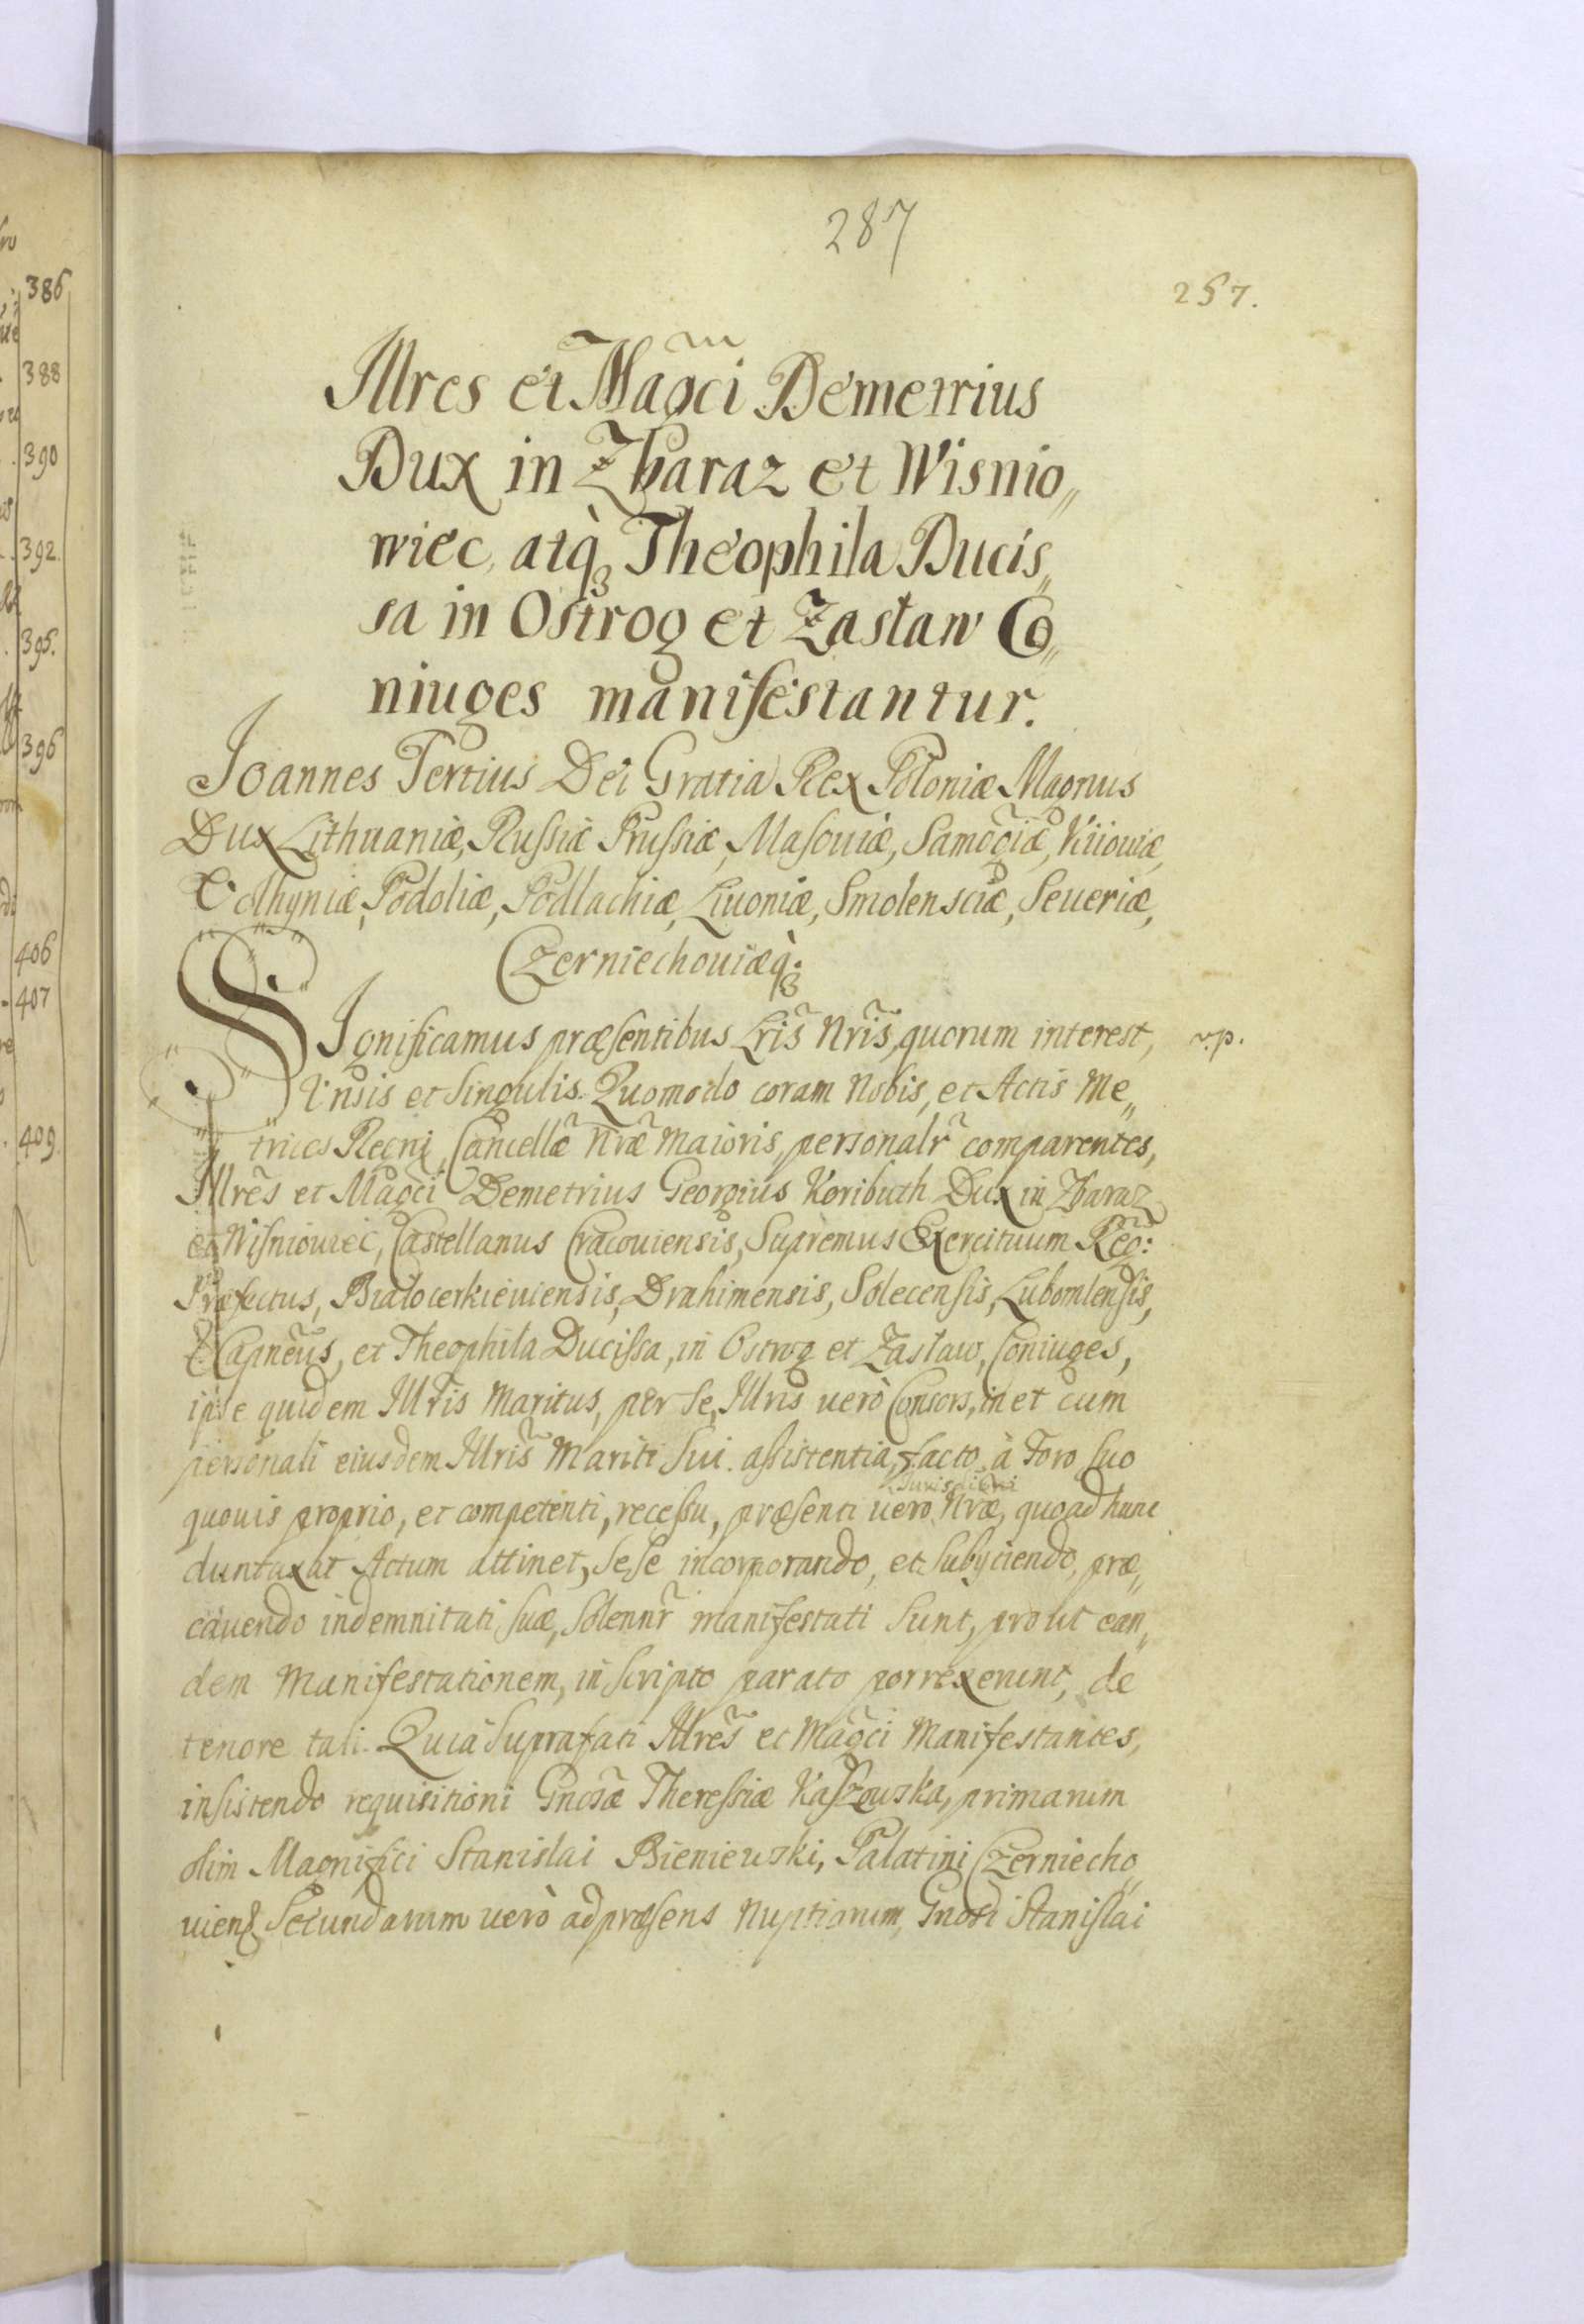 287
257.
Illres et Magci Demetrius
Dux in Zbaraz et Wisnio„
wiec, atq̀ Theophila Ducis„
sa in Ostrog et Zasław Co„
niuges manifestantur.
Joannes Tertius Dei Gratia Rex Poloniæ Magnus
Dux Lithuaniæ, Russiæ Prussiæ, Masouiæ, Samogiæ, Kiiouiæ,
Volhyniæ, Podoliæ, Podlachiæ, Liuoniæ, Smolensciæ, Seueriæ,
Czerniechouiæq̀;
SIgnificamus præsentibus Lris Nris, quorum interest, v.p.
Vnsis et Singulis. Quomodo coram Nobis, et Actis Me„
trices Regni Cancellæ Nræ Maioris, personalr comparentes,
Illres et Magci Demetrius Georgius Koributh Dux in Zbaraz
et Wisniouiec, Castellanus Cracouiensis, Supremus Exercituum Reg:
Præfectus, Białocerkieuiensis, Drahimensis, Solecensis, Lubomlensis,
Capneus, et Theophila Ducissa, in Ostrog et Zasław, Coniuges,
ipse quidem Illris Maritus, per se, Illris uerò Consors, in et cum
personali eiusdem Illris Mariti Sui assistentia, facto à Foro Suo
Jurisdictni
quouis proprio, et competenti, recessu, præsenti uero Nræ, quoad hunc
duntaxat Actum attinet, Sese incorporando, et Subyciendo, præ„
cauendo indemnitati suæ, Solennr manifestati Sunt, prout ean„
dem Manifestationem, in Scripto parato porrexerunt, de
tenore tali. Quia Suprafati Illres et Magci Manifestantes,
insistendo requisitioni Gnosæ Theressiæ Kaszowska, primarum
olim Magnifici Stanislai Bieniewski, Palatini Czerniecho„
uiens Secundarum uerò ad præsens Nuptiarum, Gnosi Stanislai
386
388
390
392.
395.
396
406
407
409.